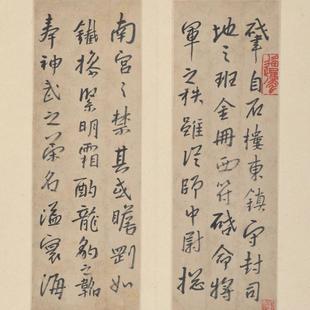 肇自石樓東鎮守封司
地之班金冊西符硃命將
軍之秩雖從師中尉摠
南宫之禁其或瞻剛如
鐵操潔明霜酌龍豹之韜
奉神武之榮名溢寰海